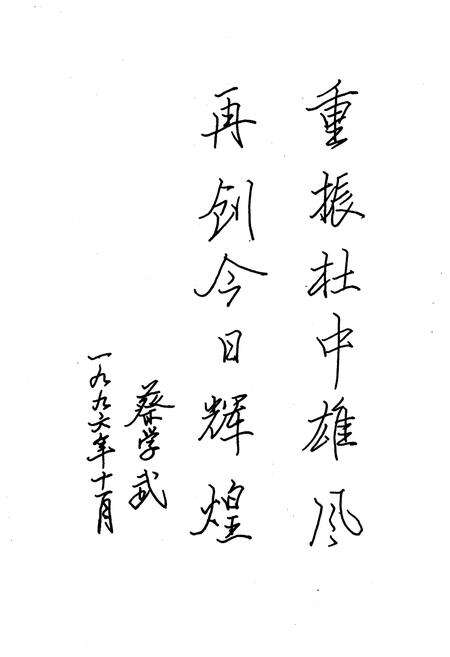 重振杜中雄风
再创今日辉煌
蔡学武
一九九六年十一月